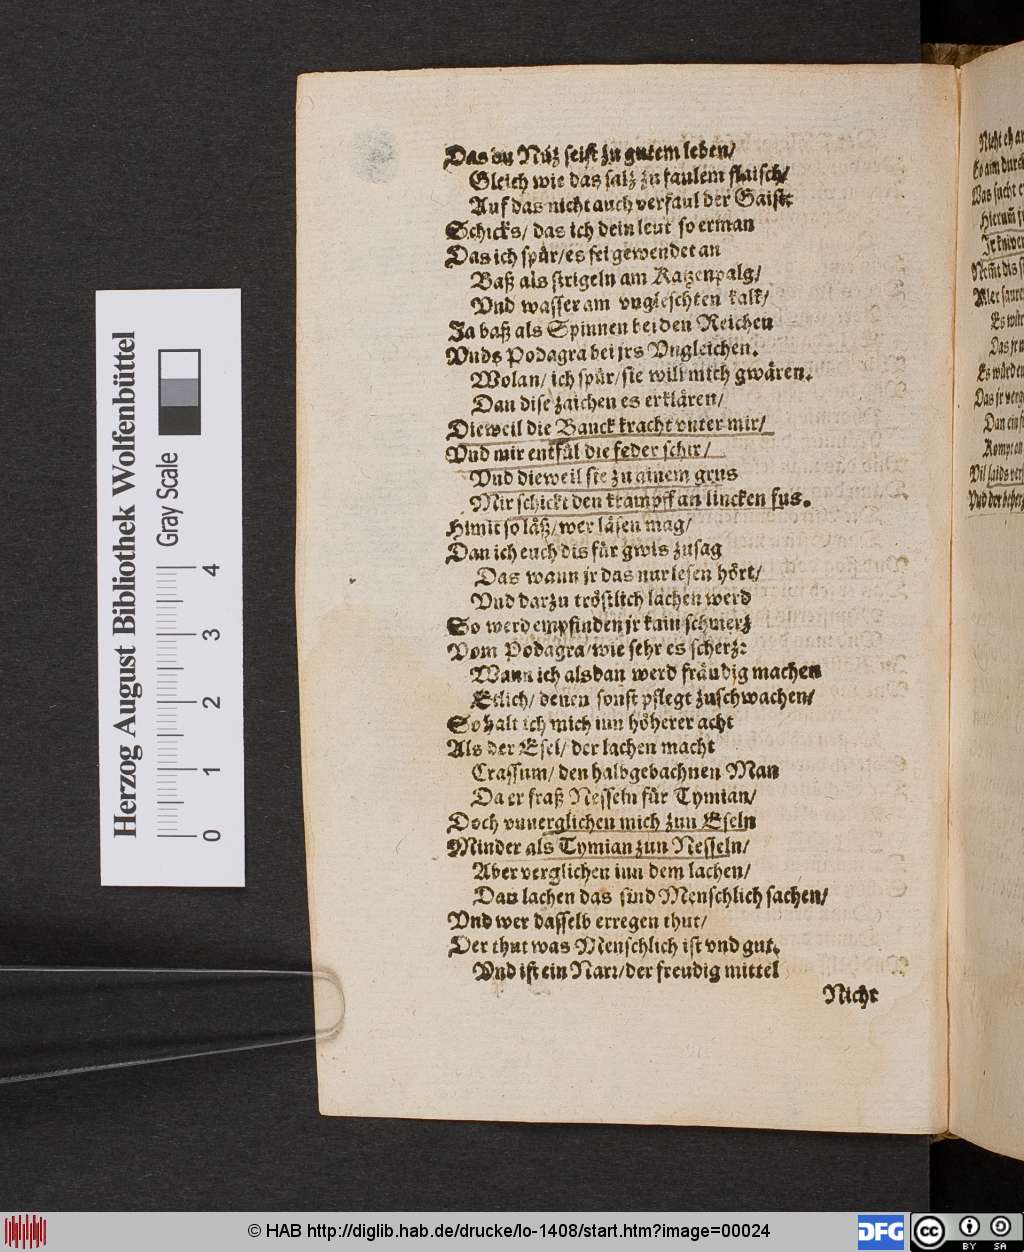 Das du Nuͤz seist zu gutem leben/
Gleich wie das salz zu faulem flaisch/
Auf das nicht auch verfaul der Gaist:
Schicks/ das ich dein leut so erman
Das ich spuͤr/es sei gewendet an
Baß als strigeln am Katzenpalg/
Vnd wasser am vngleschten kalk/
Ja baß als Spinnen bei den Reichen
Vnds Podagra bei jrs Vngleichen.
Wolan/ ich spuͤr/sie will mich gwaͤren.
Dan dise zaichen es erklaͤren/
Dieweil die Banck kracht vnter mir/
Vnd mir entfaͤl die feder schir/
Vnd dieweil sie zu ainem grus
Mir schickt den krampff an lincken fus.
Himit so laͤßt/wer laͤsen mag/
Dan ich euch dis fuͤr gwis zusag
Das wann jr das nur lesen hoͤrt/
Vnd darzu troͤstlich lachen werd
So werd empfinden jr kain schmerz
Vom Podagra/wie sehr es scherz:
Wann ich alsdan werd fraͤudig machen
Etlich/ denen sonst pflegt zuschwachen/
So halt ich mich inn hoͤherer acht
Als der Esel/ der lachen macht
Crassum/ den halbgebachnen Man
Da er fraß Nesseln fuͤr Tymian/
Doch vnuerglichen mich zun Eseln
Minder als Tymian zun Nesseln/
Aber verglichen inn dem lachen/
Dan lachen das sind Menschlich sachen/
Vnd wer dasselb erregen thut/
Der thut was Menschlich ist vnd gut.
Vnd ist ein Narr/der freudig mittel
Nicht
Herzog August Bibliothek Wolfenbüttel
Gray Scale
0 1 2 3 4
© HAB http://diglib.hab.de/drucke/lo-1408/start.htm?image=00024
DFG
cc BY SA